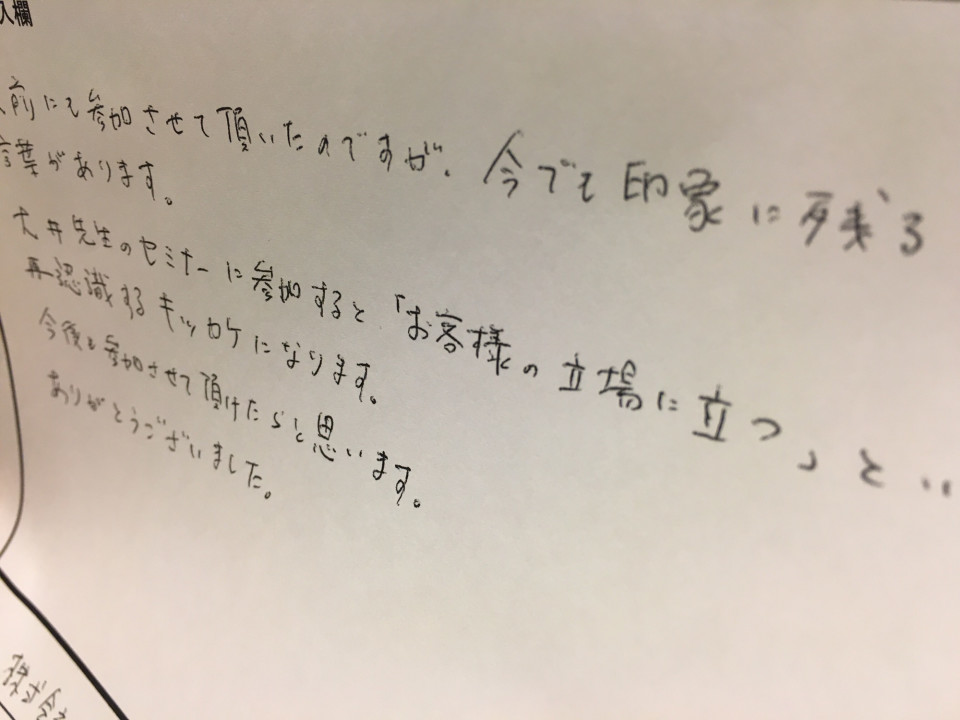 入欄
前にも参加させて頂いたのですが、今でも印象に残る
言葉があります。
大井先生のセミナーに参加すると「お客様の立場に立つ」とい
再認識するキッカケになります。
今後も参加させて頂けたらと思います。
ありがとうございました。
株式会